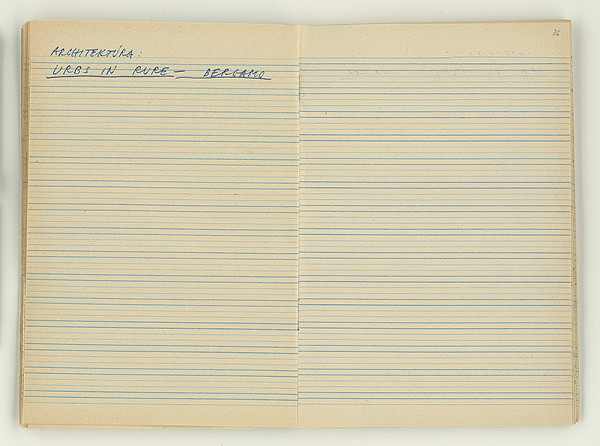 ARCHITEKTÚRA:
URBS IN RURE — BERGAMO